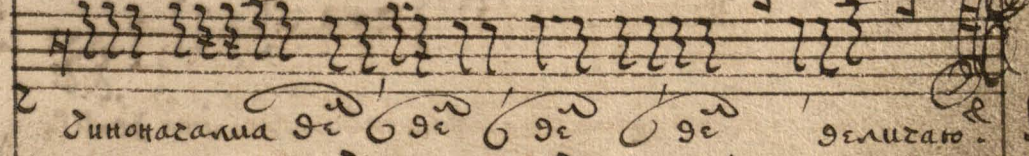 чиноначалиа вел вел вел вел величаю.